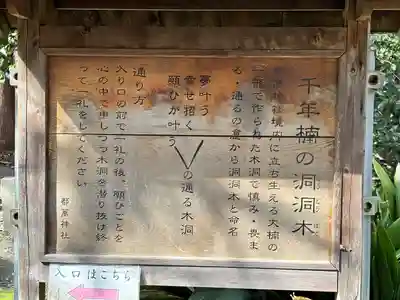 千年楠の洞洞木
神社境内に立ち生える大楠の
一部で作られた木洞で慎み・畏ま
る・通るの意から洞洞木と命名
夢叶う
幸せ招く
願ひが叶う
の通る木洞
通り方
入り口の前で一礼の後、願ひごとを
心の中で申しつつ木洞を潜り抜け終
って一礼をしてください
都萬神社
入口はこちら